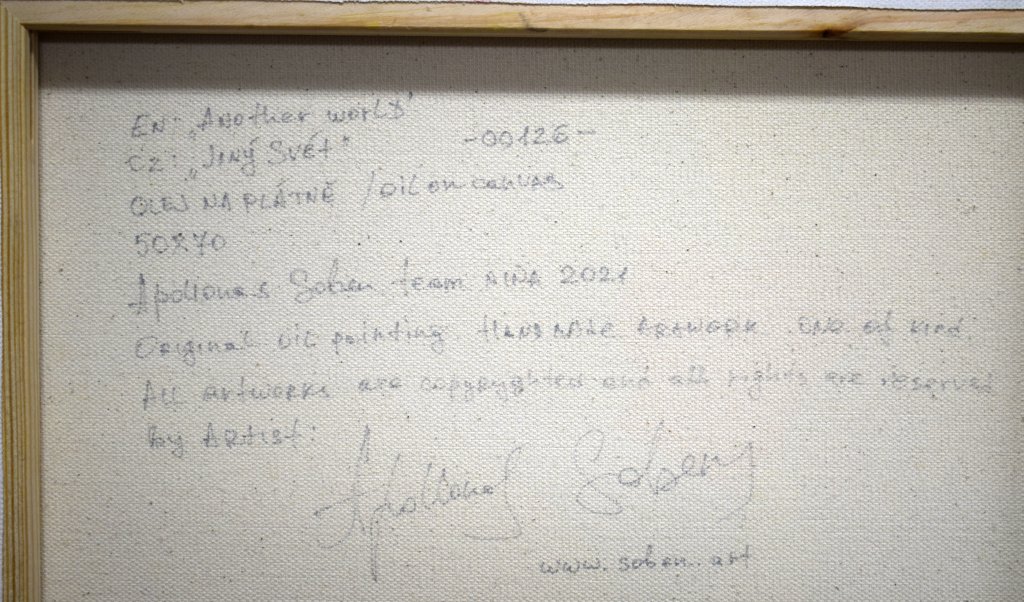 EN: „Another world"
CZ: „JINÝ Svět" -00126-
OLEJ NA PLÁTNĚ / oil on canvas
50x70
Apollonas Soben team 2021
Original oil painting. HANDMADE ARTWORK. ONE of kind.
All artworks are copyryghted and all rights are reserved
by ARtist:
Apollonas Soben
www.soben.art